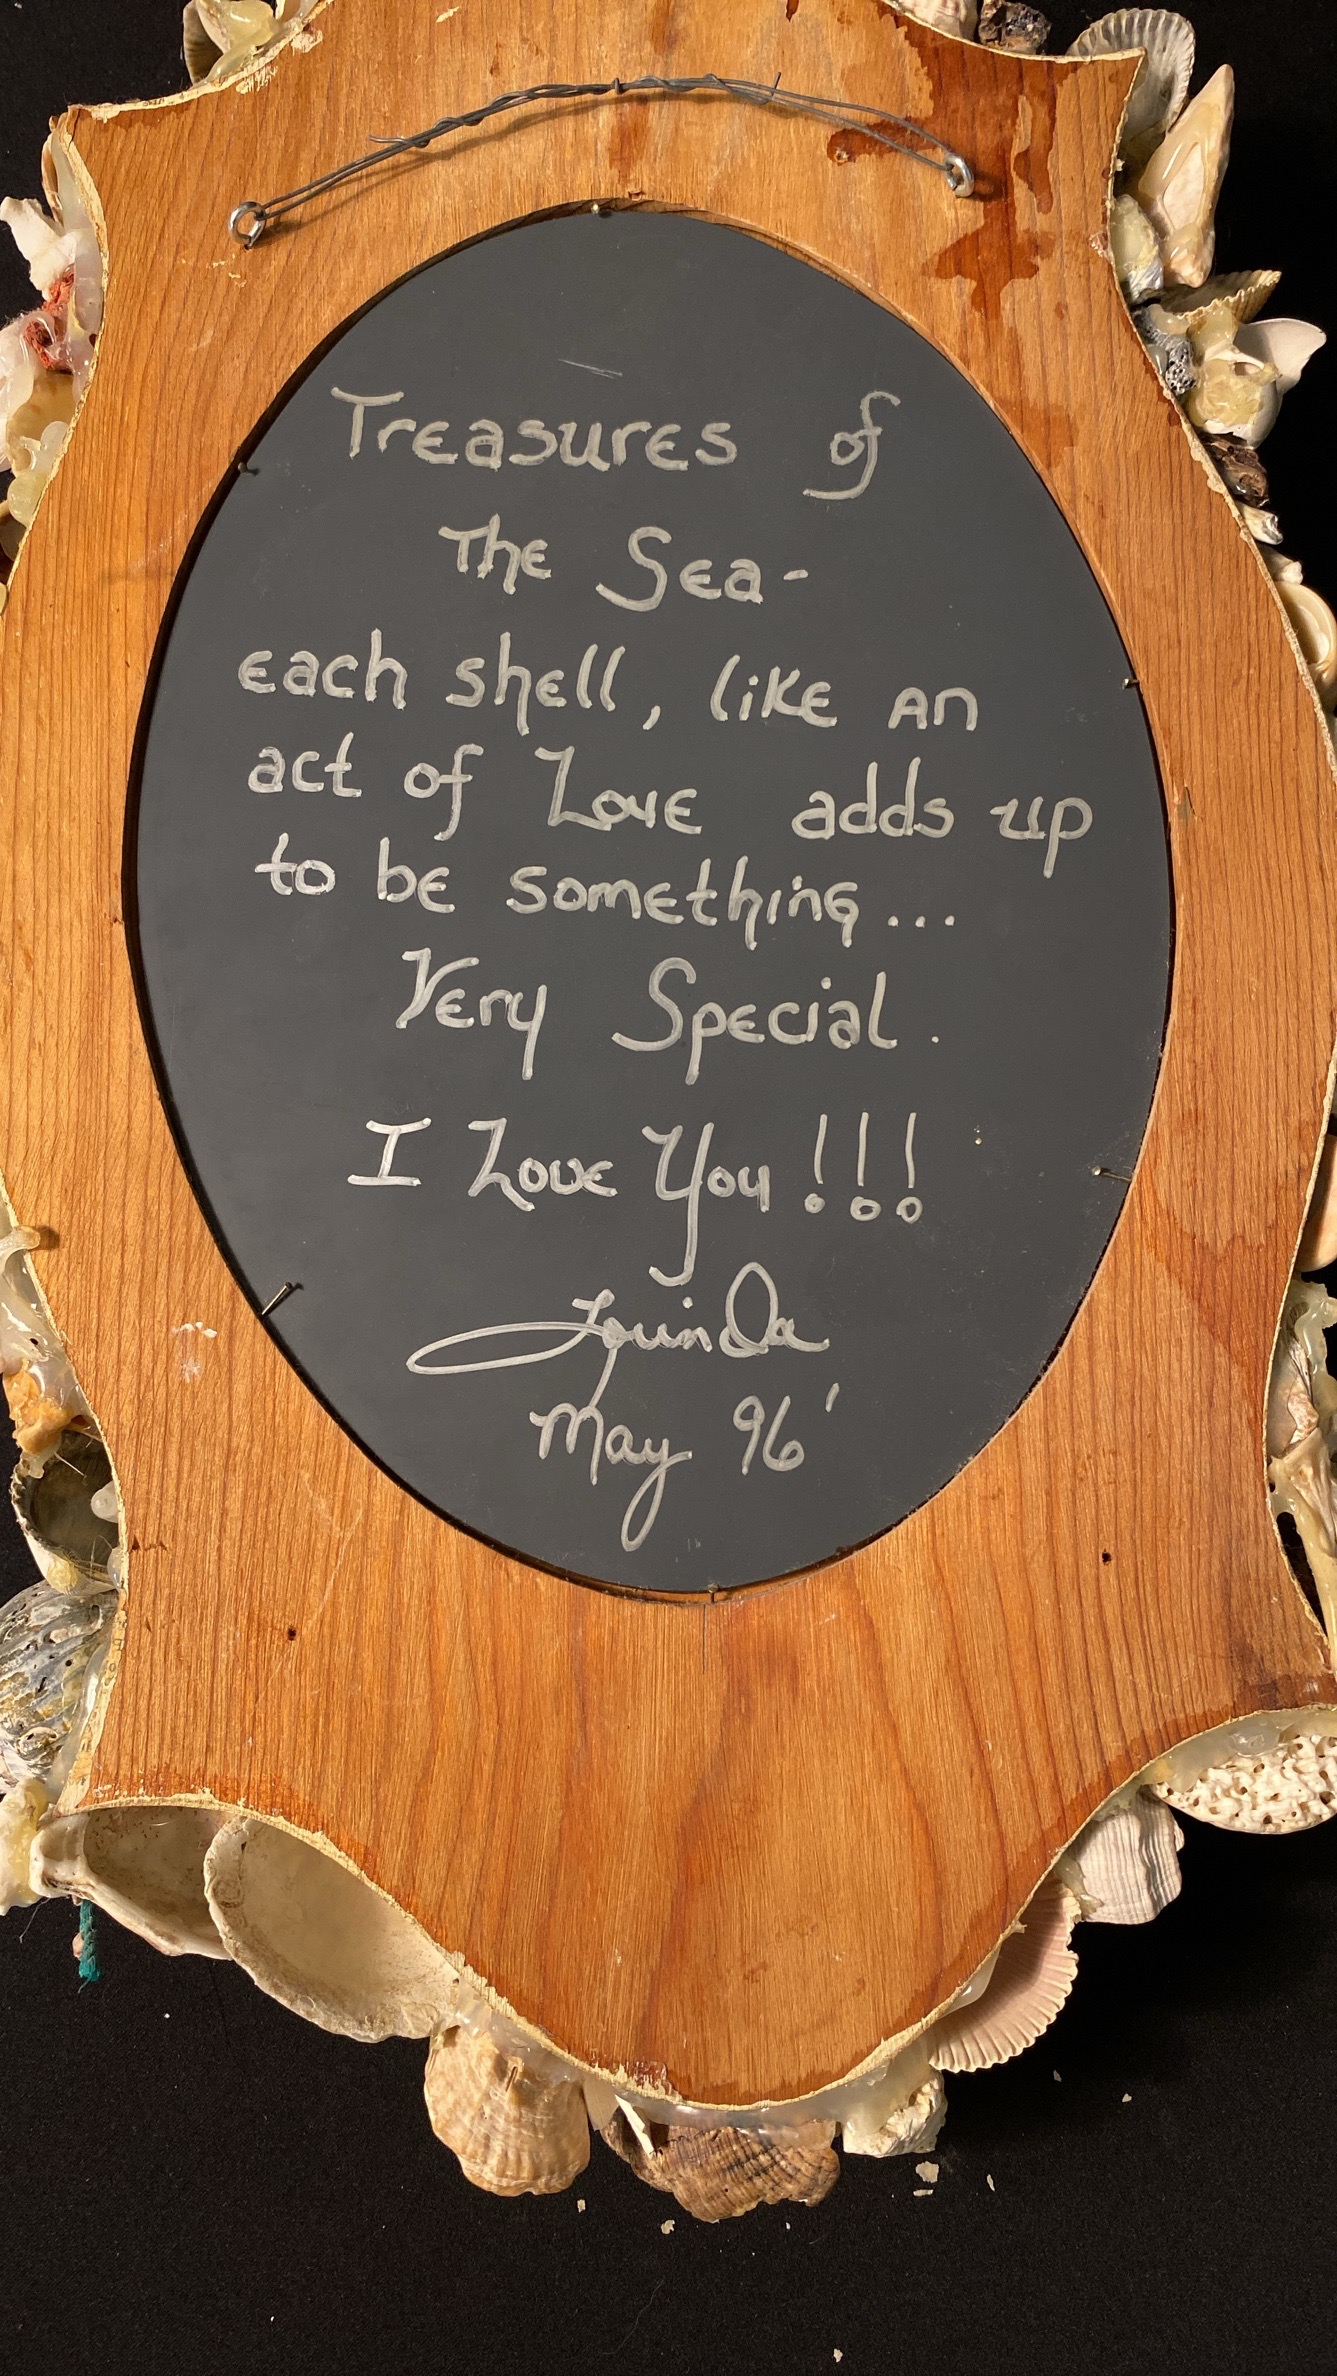 Treasures of
the Sea-
each shell, like an
act of Love adds up
to be something...
Very Special.
I Love You!!!
Lorinda
May 96'